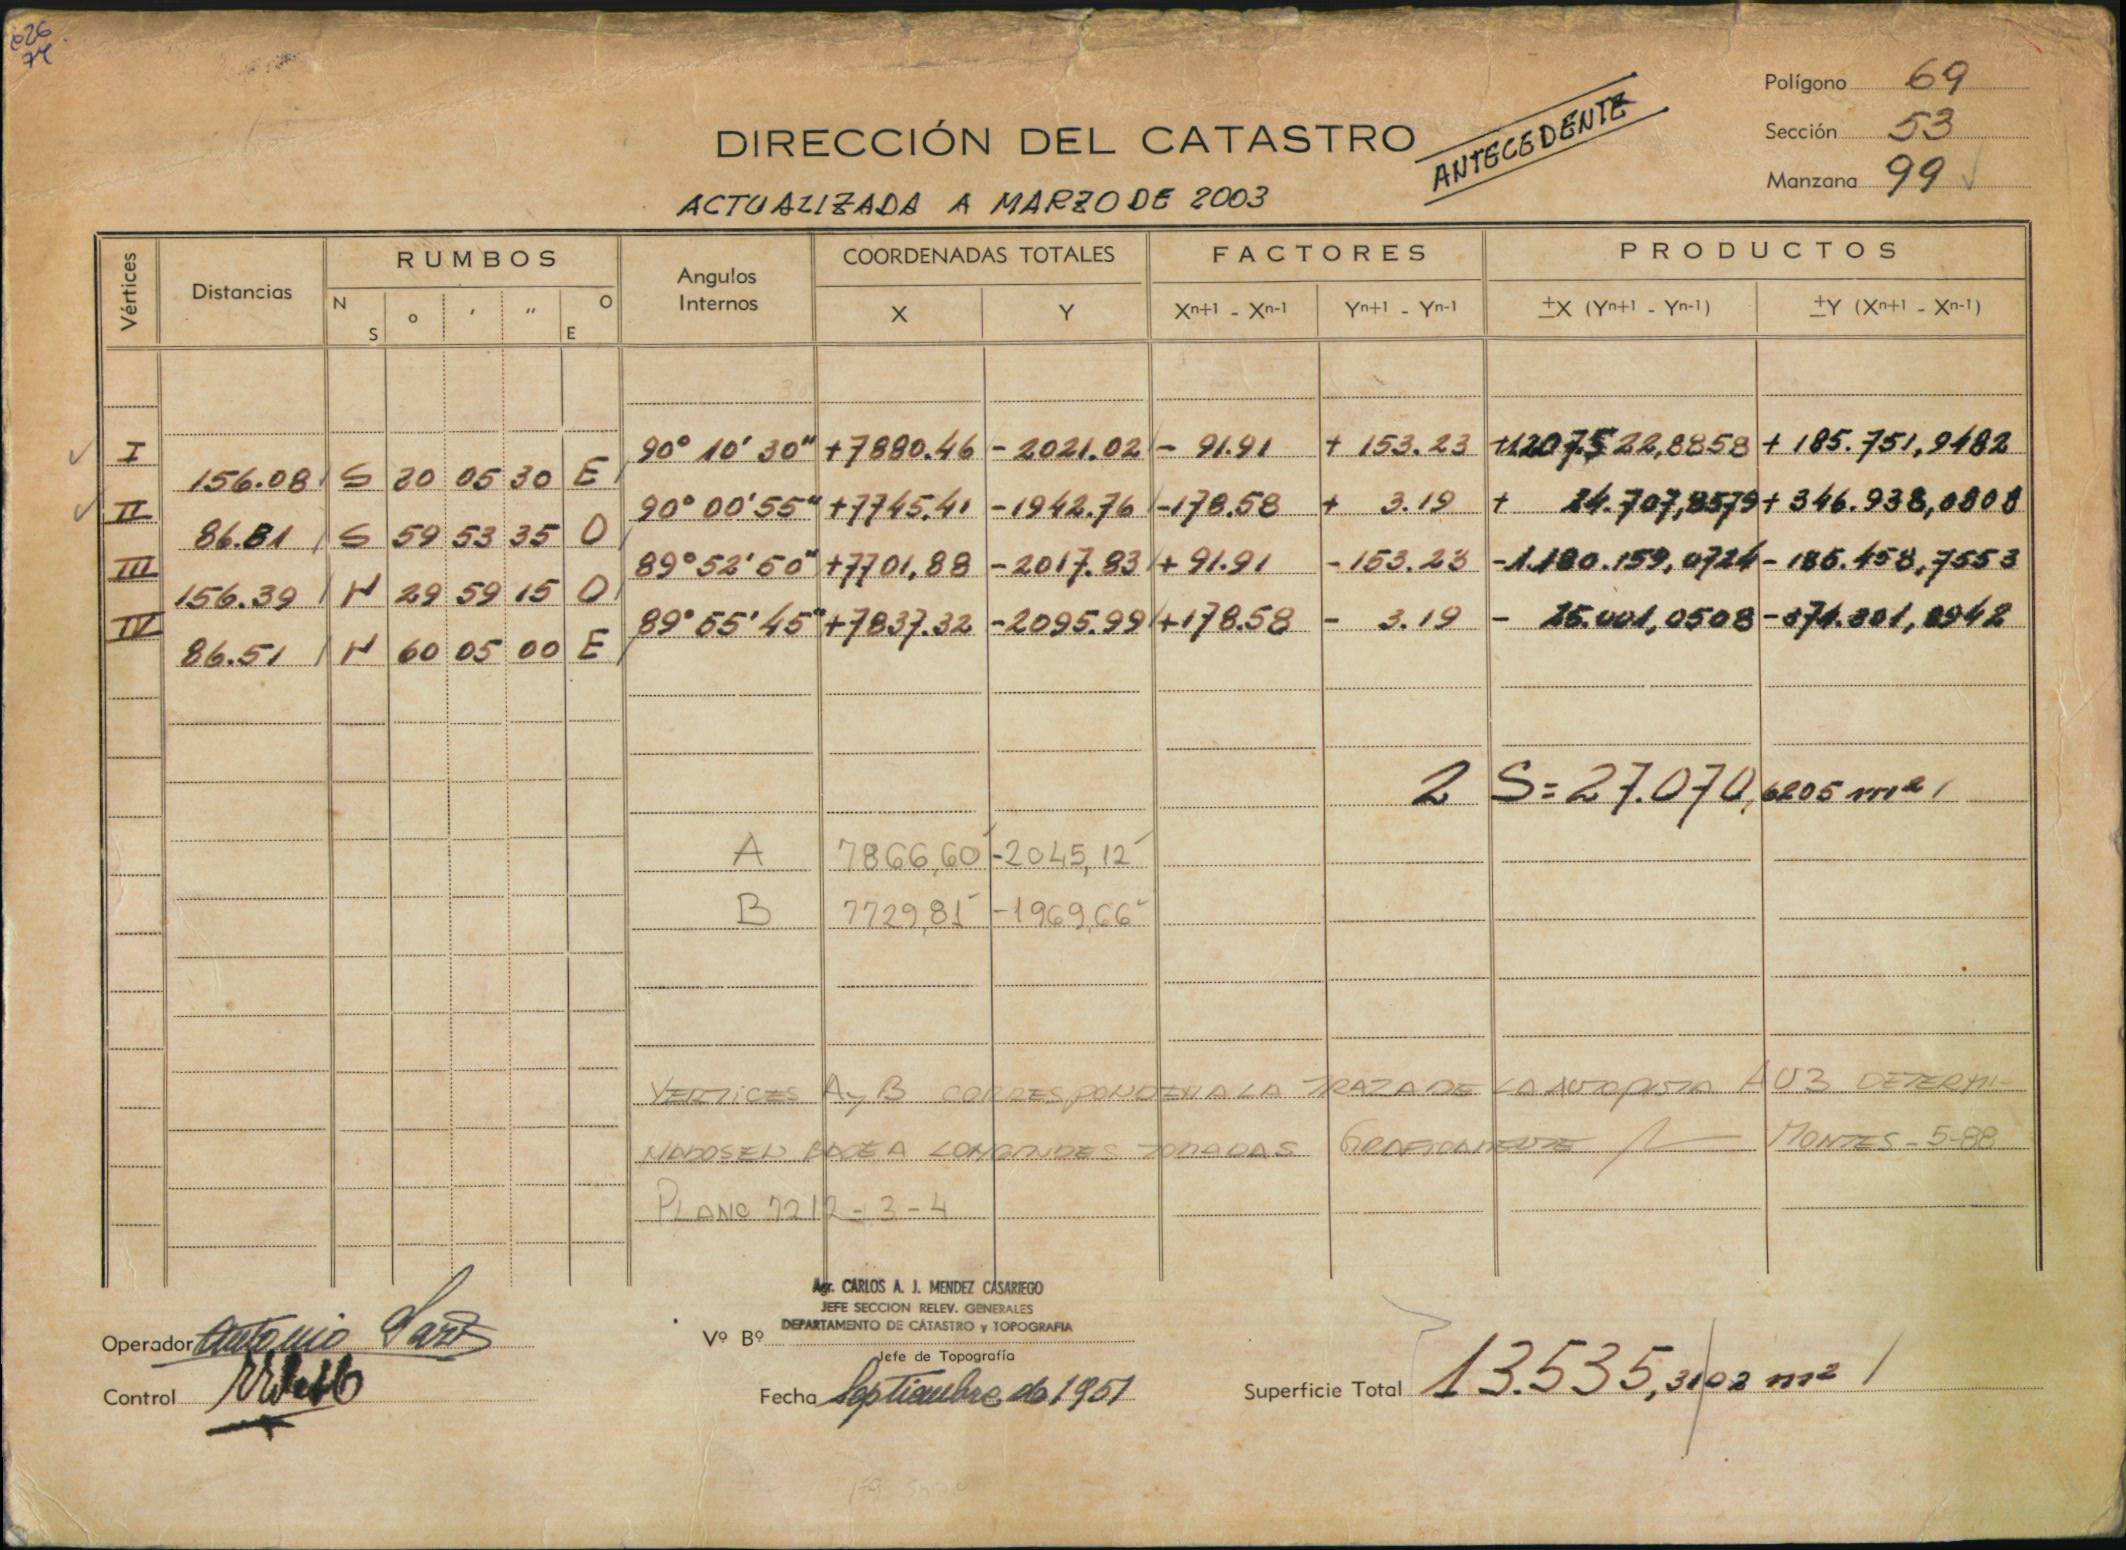 626
74
Polígono 69
DIRECCIÓN DEL CATASTRO
ANTECEDENTE
Sección 53
Manzana 99
ACTUALIZADA A MARZO DE 2003
Vértices Distancias RUMBOS Angulos Internos COORDENADAS TOTALES FACTORES PRODUCTOS
N S o ' " O E X Y Xn+1 - Xn-1 Yn+1 - Yn-1 ±X (Yn+1 - Yn-1) ±Y (Xn+1 - Xn-1)
I 90° 10' 30" +7880.46 - 2021.02 - 91.91 + 153.23 +1.207.522,8858 + 185.751,9482
156.08 S 20 05 30 E
II 90° 00' 55" +7745.41 -1942.76 -178.58 + 3.19 + 24.707,8579 + 346.938,0808
86.81 S 59 53 35 O
III 89° 52' 50" +7701,88 -2017.83 + 91.91 -153.23 -1.180.159,0724 - 185.458,7553
156.39 N 29 59 15 O
IV 89° 55' 45" +7837.32 -2095.99 +178.58 - 3.19 - 25.001,0508 -374.301,8942
86.51 N 60 05 00 E
2 S = 27.070,6205 m²
A 7866,60 -2045,12
B 7729,81 -1969,66
VERTICES A y B CORRESPONDEN A LA TRAZA DE LA AUTOPISTA AU3 DETERMI-
NADOS EN BASE A LONGITUDES TOMADAS GRAFICAMENTE MONTES - 5-88
PLANO 7212-3-4
Agr. CARLOS A. J. MENDEZ CASARIEGO
JEFE SECCION RELEV. GENERALES
DEPARTAMENTO DE CATASTRO y TOPOGRAFIA
Operador Antonio
Vº Bº
Jefe de Topografía
Control
Fecha Septiembre de 1951
Superficie Total 13.535,3102 m²